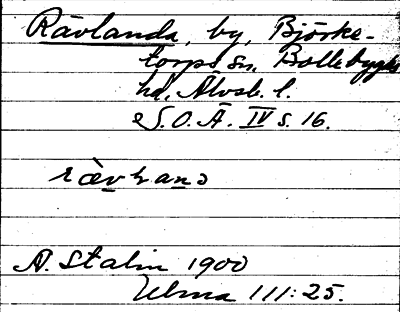 Rävlanda, by, Björke-
torps sn, Bollebygds
hd, Älvsb. l.
S.O.Ä. IV s. 16.
A. Stalin 1900
Ulma 111:25.